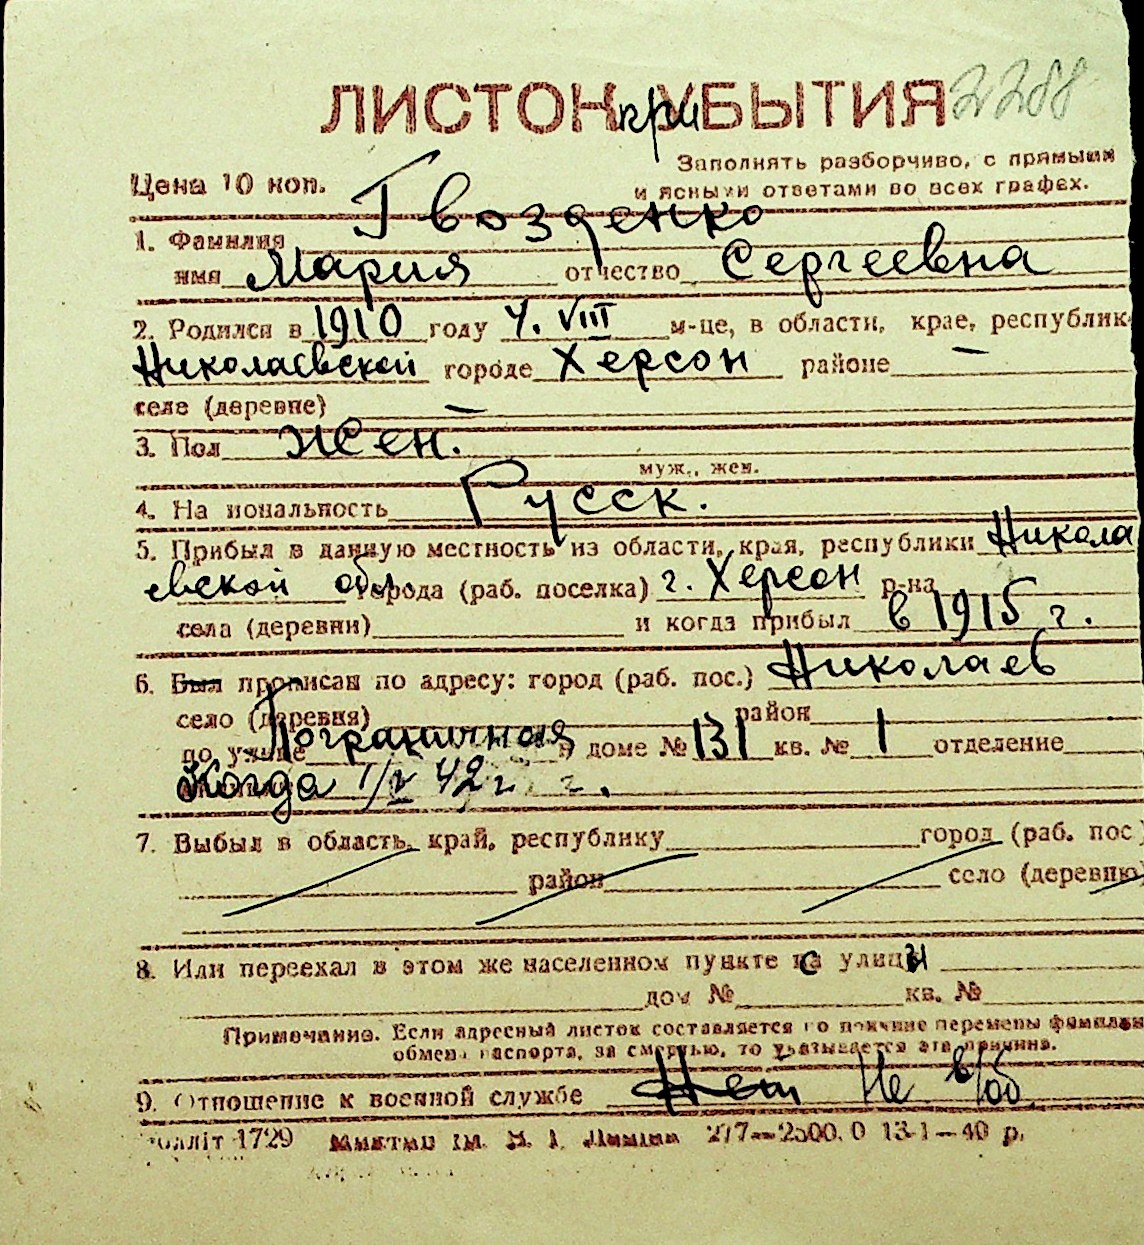 ЛИСТОК при УБЫТИЯ 2288
Заполнять разборчиво, с прямыми
Цена 10 коп. и ясными ответами во всех графах.
1. Фамилия Гвозденко
имя Мария отчество Сергеевна
2. Родился в 1910 году 4. VIII м-це, в области, крае, республик
Николаевской городе Херсон районе —
селе (деревне) —
3. Пол Жен.
муж., жен.
4. На иональность Русск.
5. Прибыл в данную местность из области, края, республики Никола
евской обл. города (раб. поселка) г. Херсон р-на
села (деревни) и когда прибыл в 1915 г.
6. Был прописан по адресу: город (раб. пос.) Николаев
село (деревня) район
по улице Пограничная в доме № 131 кв. № 1 отделение
Когда 1/V 42 г. г.
7. Выбыл в область, край, республику город (раб. пос
район село (деревню)
8. Или переехал в этом же населенном пункте с улицы
дом № кв. №
Примечание. Если адресный листок составляется по причине перемены фамилии
обмена паспорта, за смертью, то указывается эта причина.
9. Отношение к военной службе Нет Не в/об
1729 2500. 13-1—40 р.